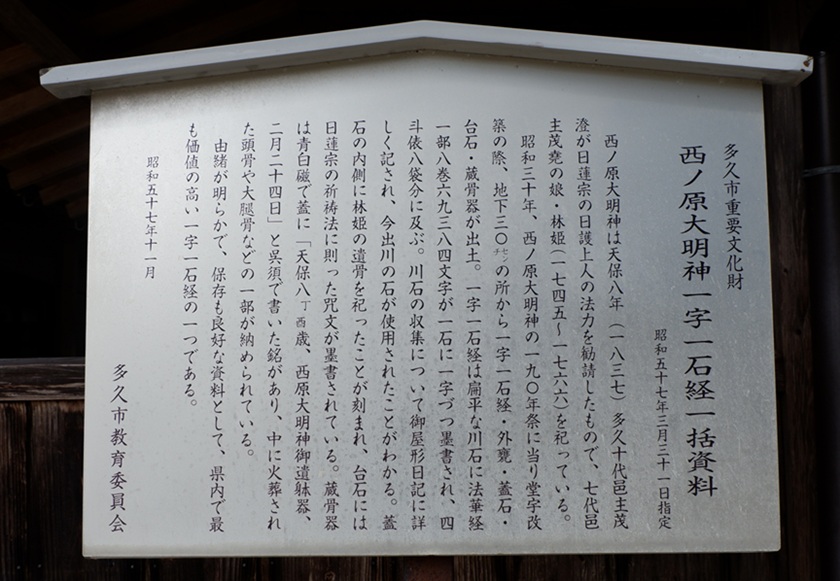 多久市重要文化財
西ノ原大明神一字一石経一括資料
昭和五十七年三月三十一日指定
西ノ原大明神は天保八年（一八三七）多久十代邑主茂
澄が日蓮宗の日護上人の法力を勧請したもので、七代邑
主茂堯の娘・林姫（一七四五～一七六六）を祀っている。
昭和三十年、西ノ原大明神の一九〇年祭に当り堂宇改
築の際、地下三〇㌢の所から一字一石経・外甕・蓋石・
台石・蔵骨器が出土。一字一石経は扁平な川石に法華経
一部八巻六九三八四文字が一石に一字づつ墨書され、四
斗俵八袋分に及ぶ。川石の収集について御屋形日記に詳
しく記され、今出川の石が使用されたことがわかる。蓋
石の内側に林姫の遺骨を祀ったことが刻まれ、台石には
日蓮宗の祈祷法に則った呪文が墨書されている。蔵骨器
は青白磁で蓋に「天保八丁酉歳、西原大明神御遺躰器、
二月二十四日」と呉須で書いた銘があり、中に火葬され
た頭骨や大腿骨などの一部が納められている。
由緒が明らかで、保存も良好な資料として、県内で最
も価値の高い一字一石経の一つである。
昭和五十七年十一月
多久市教育委員会